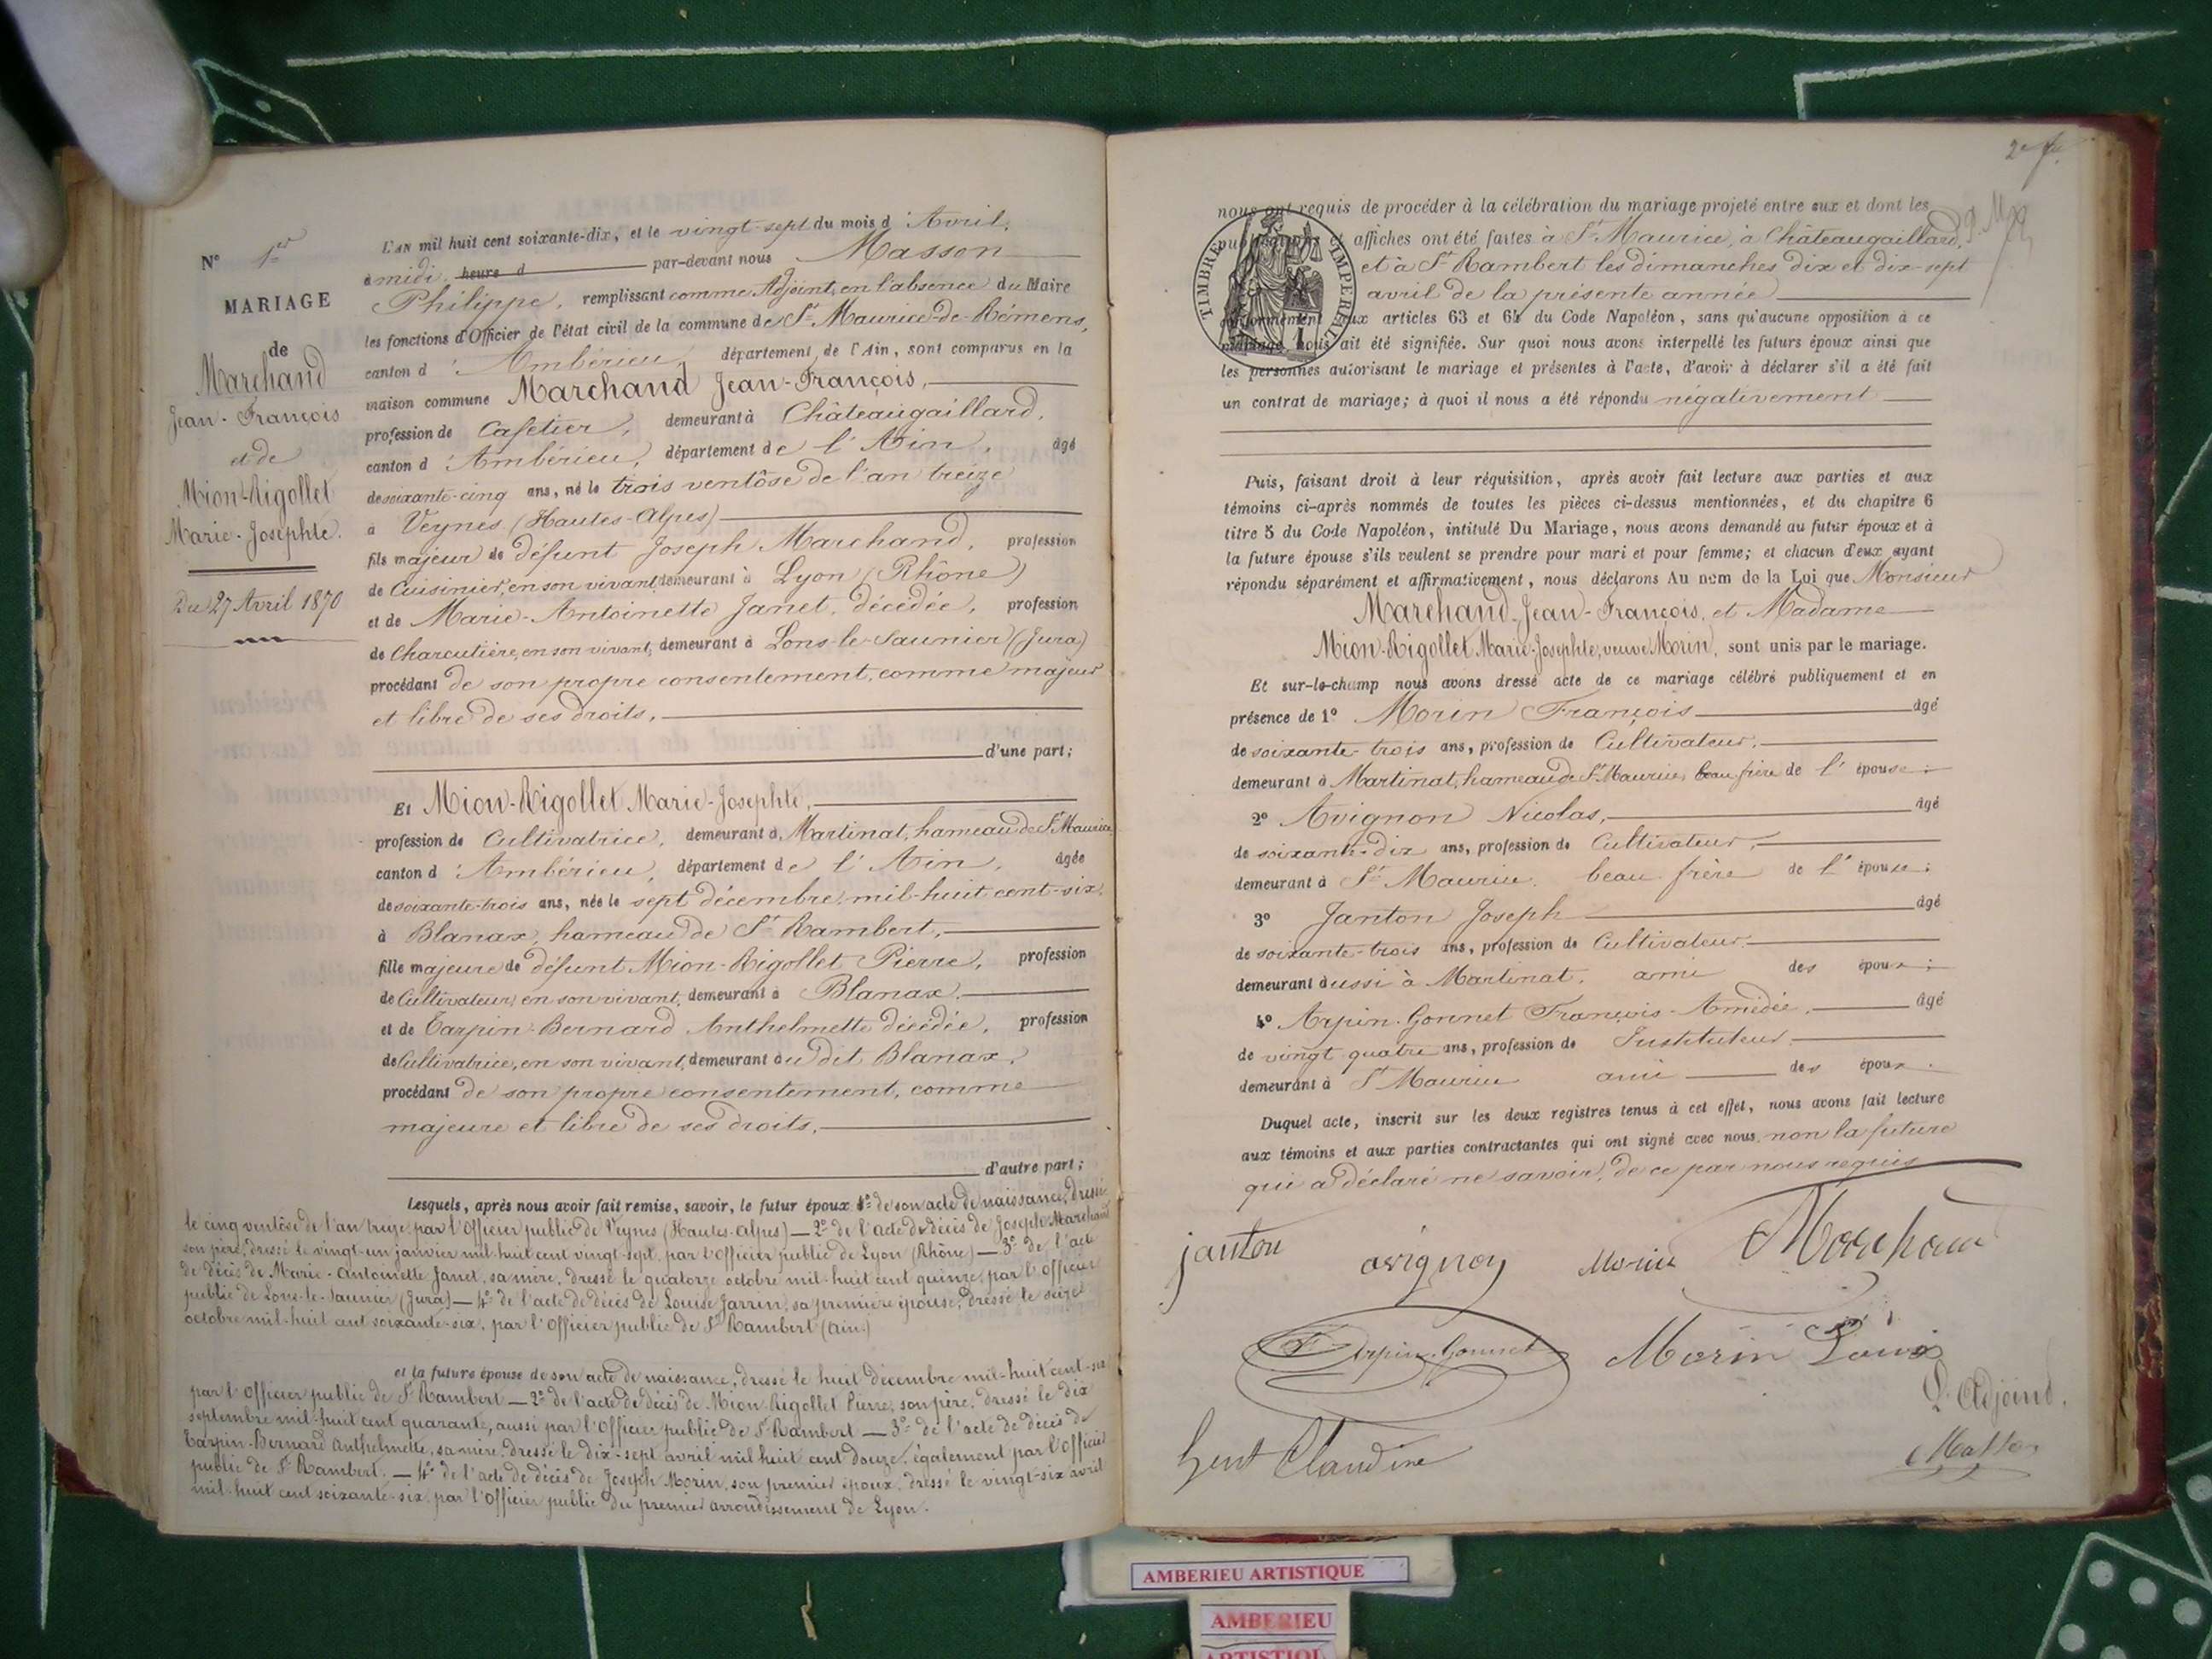 N° 1er
MARIAGE
de
Marchand
Jean-François
et de
Mion-Rigollet
Marie-Josephte.
Du 27 Avril 1870
L'AN mil huit cent soixante-dix, et le vingt-sept du mois d'Avril,
à midi, heure d par-devant nous Masson
Philippe, remplissant comme Adjoint, en l'absence du Maire
les fonctions d'Officier de l'état civil de la commune de St Maurice-de-Rémens,
canton d'Ambérieu, département de l'Ain, sont comparus en la
maison commune Marchand Jean-François,
profession de Cafetier, demeurant à Châteaugaillard,
canton d'Ambérieu, département de l'Ain, âgé
de soixante-cinq ans, né le trois ventôse de l'an treize
à Veynes (Hautes-Alpes)
fils majeur de défunt Joseph Marchand, profession
de Cuisinier, en son vivant, demeurant à Lyon (Rhône)
et de Marie-Antoinette Janet, décédée, profession
de Charcutière, en son vivant, demeurant à Lons-le-Saunier (Jura)
procédant de son propre consentement, comme majeur
et libre de ses droits,
d'une part;
Et Mion-Rigollet Marie-Josephte,
profession de Cultivatrice, demeurant à Martinat, hameau de St Maurice
canton d'Ambérieu, département de l'Ain, âgée
de soixante-trois ans, née le sept décembre mil-huit cent-six
à Blanax, hameau de St Rambert,
fille majeure de défunt Mion-Rigollet Pierre, profession
de Cultivateur, en son vivant, demeurant à Blanax,
et de Tarpin-Bernard Anthelmette décédée, profession
de Cultivatrice, en son vivant, demeurant au dit Blanax,
procédant de son propre consentement, comme
majeure et libre de ses droits,
d'autre part;
Lesquels, après nous avoir fait remise, savoir, le futur époux 1° de son acte de naissance, dressé
le cinq ventôse de l'an treize par l'Officier public de Veynes (Hautes-Alpes) — 2° de l'acte de décès de Joseph Marchand
son père, dressé le vingt-un janvier mil-huit cent vingt-sept, par l'Officier public de Lyon (Rhône) — 3° de l'acte
de décès de Marie-Antoinette Janet, sa mère, dressé le quatorze octobre mil-huit cent quinze, par l'Officier
public de Lons-le-Saunier (Jura) — 4° de l'acte de décès de Louise Jarrin, sa première épouse, dressé le seize
octobre mil-huit cent soixante-six, par l'Officier public de St Rambert (Ain.)
et la future épouse de son acte de naissance, dressé le huit décembre mil-huit cent-six
par l'Officier public de St Rambert — 2° de l'acte de décès de Mion-Rigollet Pierre, son père, dressé le dix
septembre mil-huit cent quarante, aussi par l'Officier public de St Rambert — 3° de l'acte de décès de
Tarpin-Bernard Anthelmette, sa mère, dressé le dix-sept avril mil huit cent douze, également par l'Officier
public de St Rambert. — 4° de l'acte de décès de Joseph Morin, son premier époux, dressé le vingt-six avril
mil-huit cent soixante-six, par l'Officier public du premier arrondissement de Lyon.
2e f.
nous ont requis de procéder à la célébration du mariage projeté entre eux et dont les
affiches ont été faites à St Maurice, à Châteaugaillard,
et à St Rambert les dimanches dix et dix-sept
avril de la présente année
TIMBRE IMPERIAL
conformément aux articles 63 et 64 du Code Napoléon, sans qu'aucune opposition à ce
mariage nous ait été signifiée. Sur quoi nous avons interpellé les futurs époux ainsi que
les personnes autorisant le mariage et présentes à l'acte, d'avoir à déclarer s'il a été fait
un contrat de mariage; à quoi il nous a été répondu négativement
Puis, faisant droit à leur réquisition, après avoir fait lecture aux parties et aux
témoins ci-après nommés de toutes les pièces ci-dessus mentionnées, et du chapitre 6
titre 5 du Code Napoléon, intitulé Du Mariage, nous avons demandé au futur époux et à
la future épouse s'ils veulent se prendre pour mari et pour femme; et chacun d'eux ayant
répondu séparément et affirmativement, nous déclarons Au nom de la Loi que Monsieur
Marchand Jean-François, et Madame
Mion-Rigollet Marie-Josephte, veuve Morin, sont unis par le mariage.
Et sur-le-champ nous avons dressé acte de ce mariage célébré publiquement et en
présence de 1° Morin François âgé
de soixante-trois ans, profession de Cultivateur,
demeurant à Martinat, hameau de St Maurice, beau frère de l'épouse;
2° Avignon Nicolas, âgé
de soixante-dix ans, profession de Cultivateur,
demeurant à St Maurice, beau-frère de l'épouse;
3° Janton Joseph âgé
de soixante-trois ans, profession de Cultivateur,
demeurant aussi à Martinat, ami des époux;
4° Arpin-Gonnet François-Amédée, âgé
de vingt quatre ans, profession de Instituteur
demeurant à St Maurice ami des époux.
Duquel acte, inscrit sur les deux registres tenus à cet effet, nous avons fait lecture
aux témoins et aux parties contractantes qui ont signé avec nous, non la future
qui a déclaré ne savoir, de ce par nous requis
janton avignon Morin Marchand
Arpin-Gonnet Morin Louis
L'Adjoint,
Claudine Masson
AMBERIEU ARTISTIQUE
AMBERIEU
ARTISTIQUE